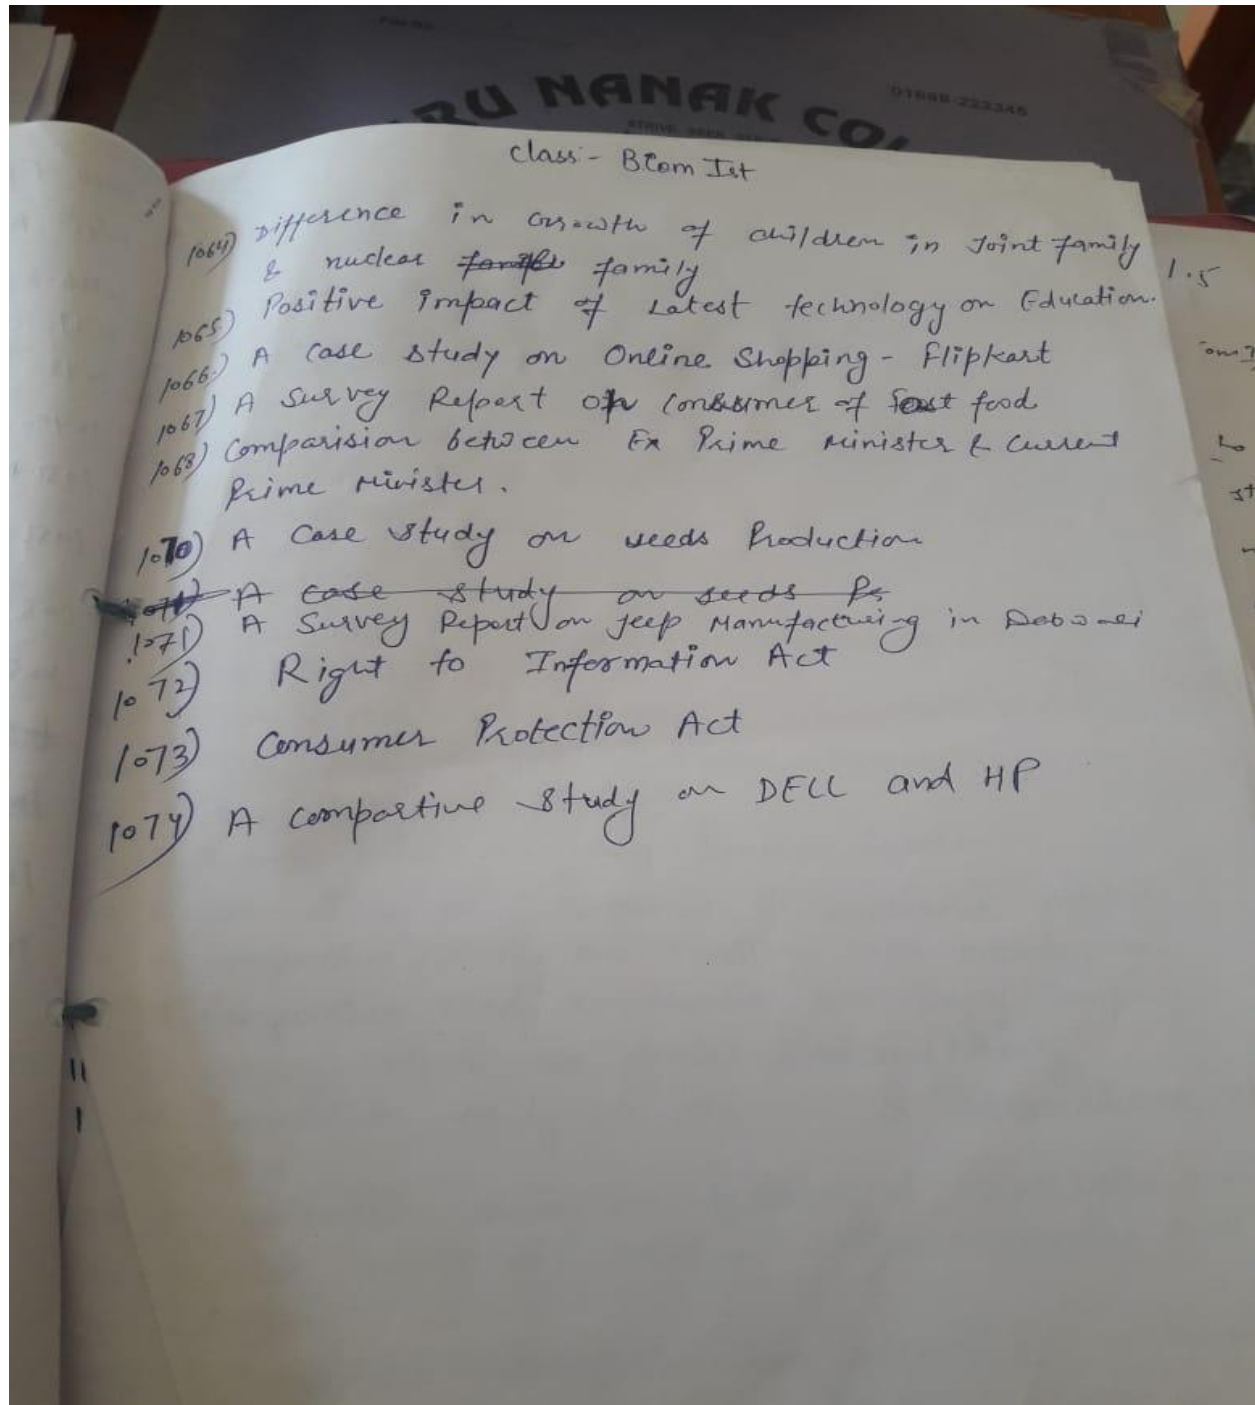 RU NANAK COL
01698-223345
Class:- BCom Ist
1064) Difference in Growth of children in Joint family
& nuclear family
1.5
1065) Positive impact of Latest technology on Education.
1066.) A Case study on Online Shopping - Flipkart
1067) A Survey Report on Consumer of fast food
1068) Comparision between Ex Prime Minister & Current
Prime Minister.
1070) A Case study on seeds Production
A case study on seeds Pr
1071) A Survey Report on jeep Manufacturing in
1072) Right to Information Act
1073) Consumer Protection Act
1074) A compartive study on DELL and HP